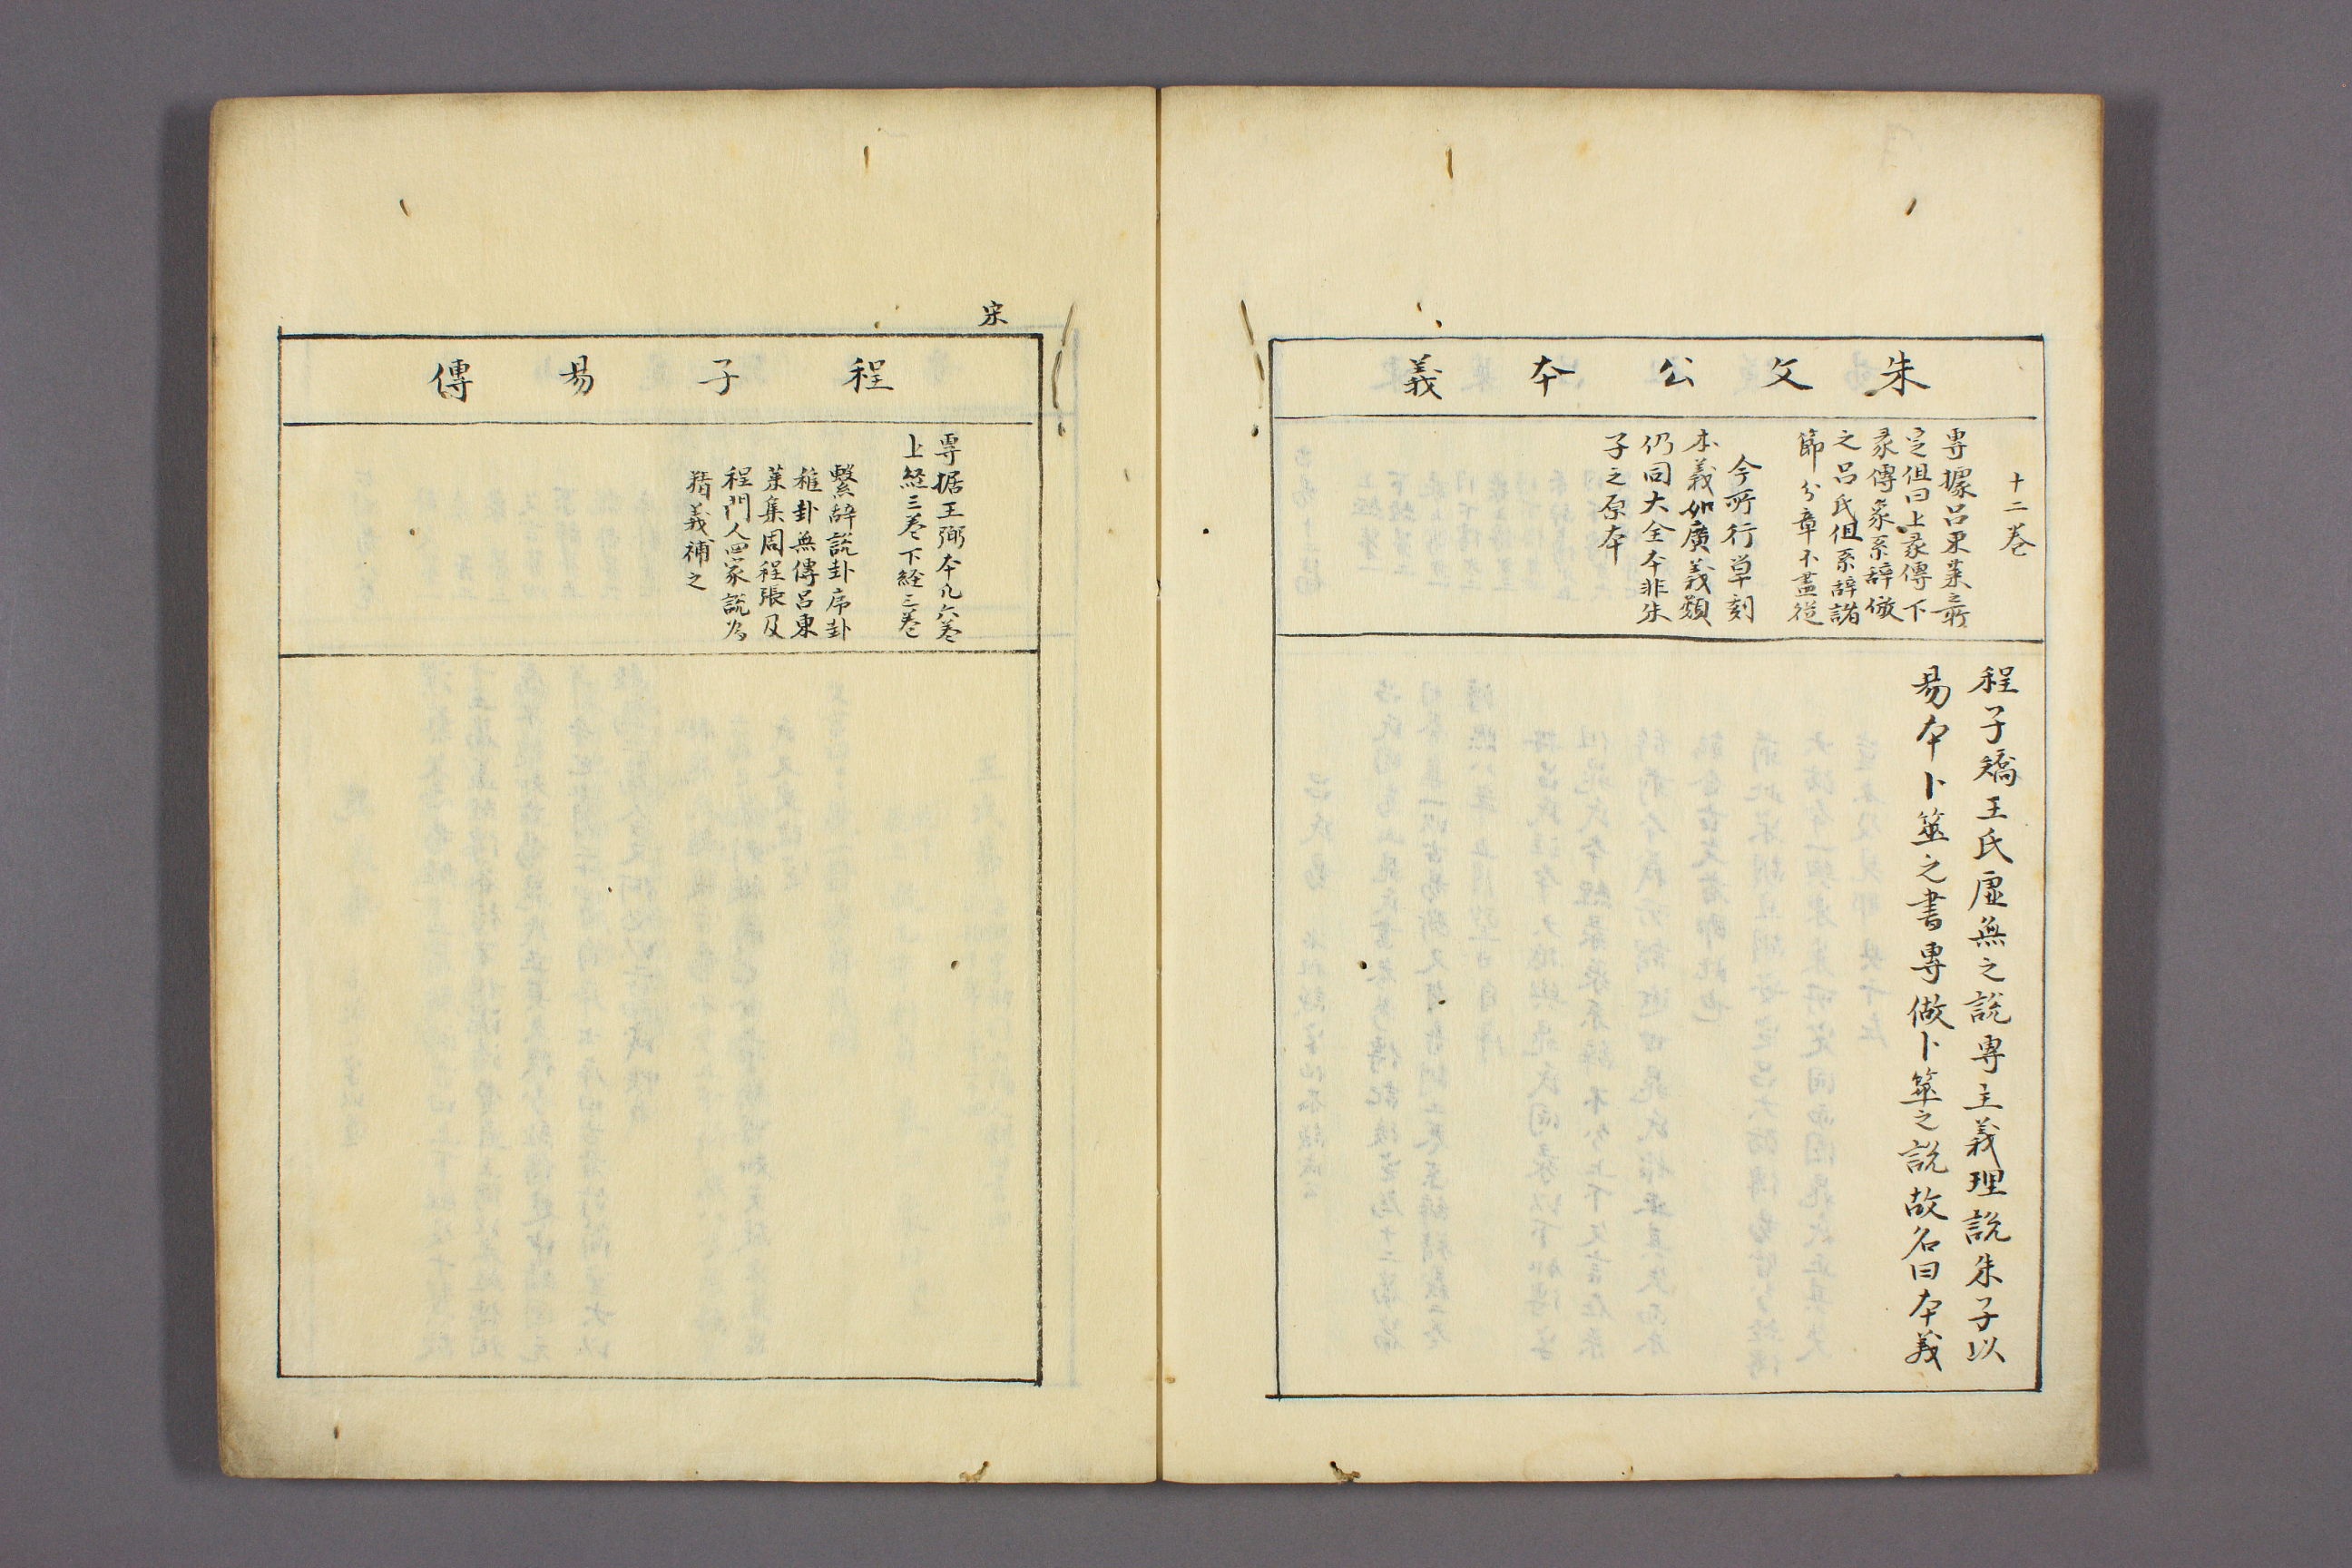 朱文公本義
十二卷
專據呂東萊之所
定但曰上彖傳下
彖傳象系辭倣
之呂氏但系辭諸
節分章不盡從
今所行單刻
本義如廣義類
仍同大全本非朱
子之原本
程子矯王氏虛無之說專主義理說朱子以
易本卜筮之書專做卜筮之說故名曰本義
宋
程子易傳
專据王弼本凡六卷
上経三卷下経三卷
繫辞說卦序卦
雜卦無傳呂東
萊集周程張及
程門人四家說為
精義補之